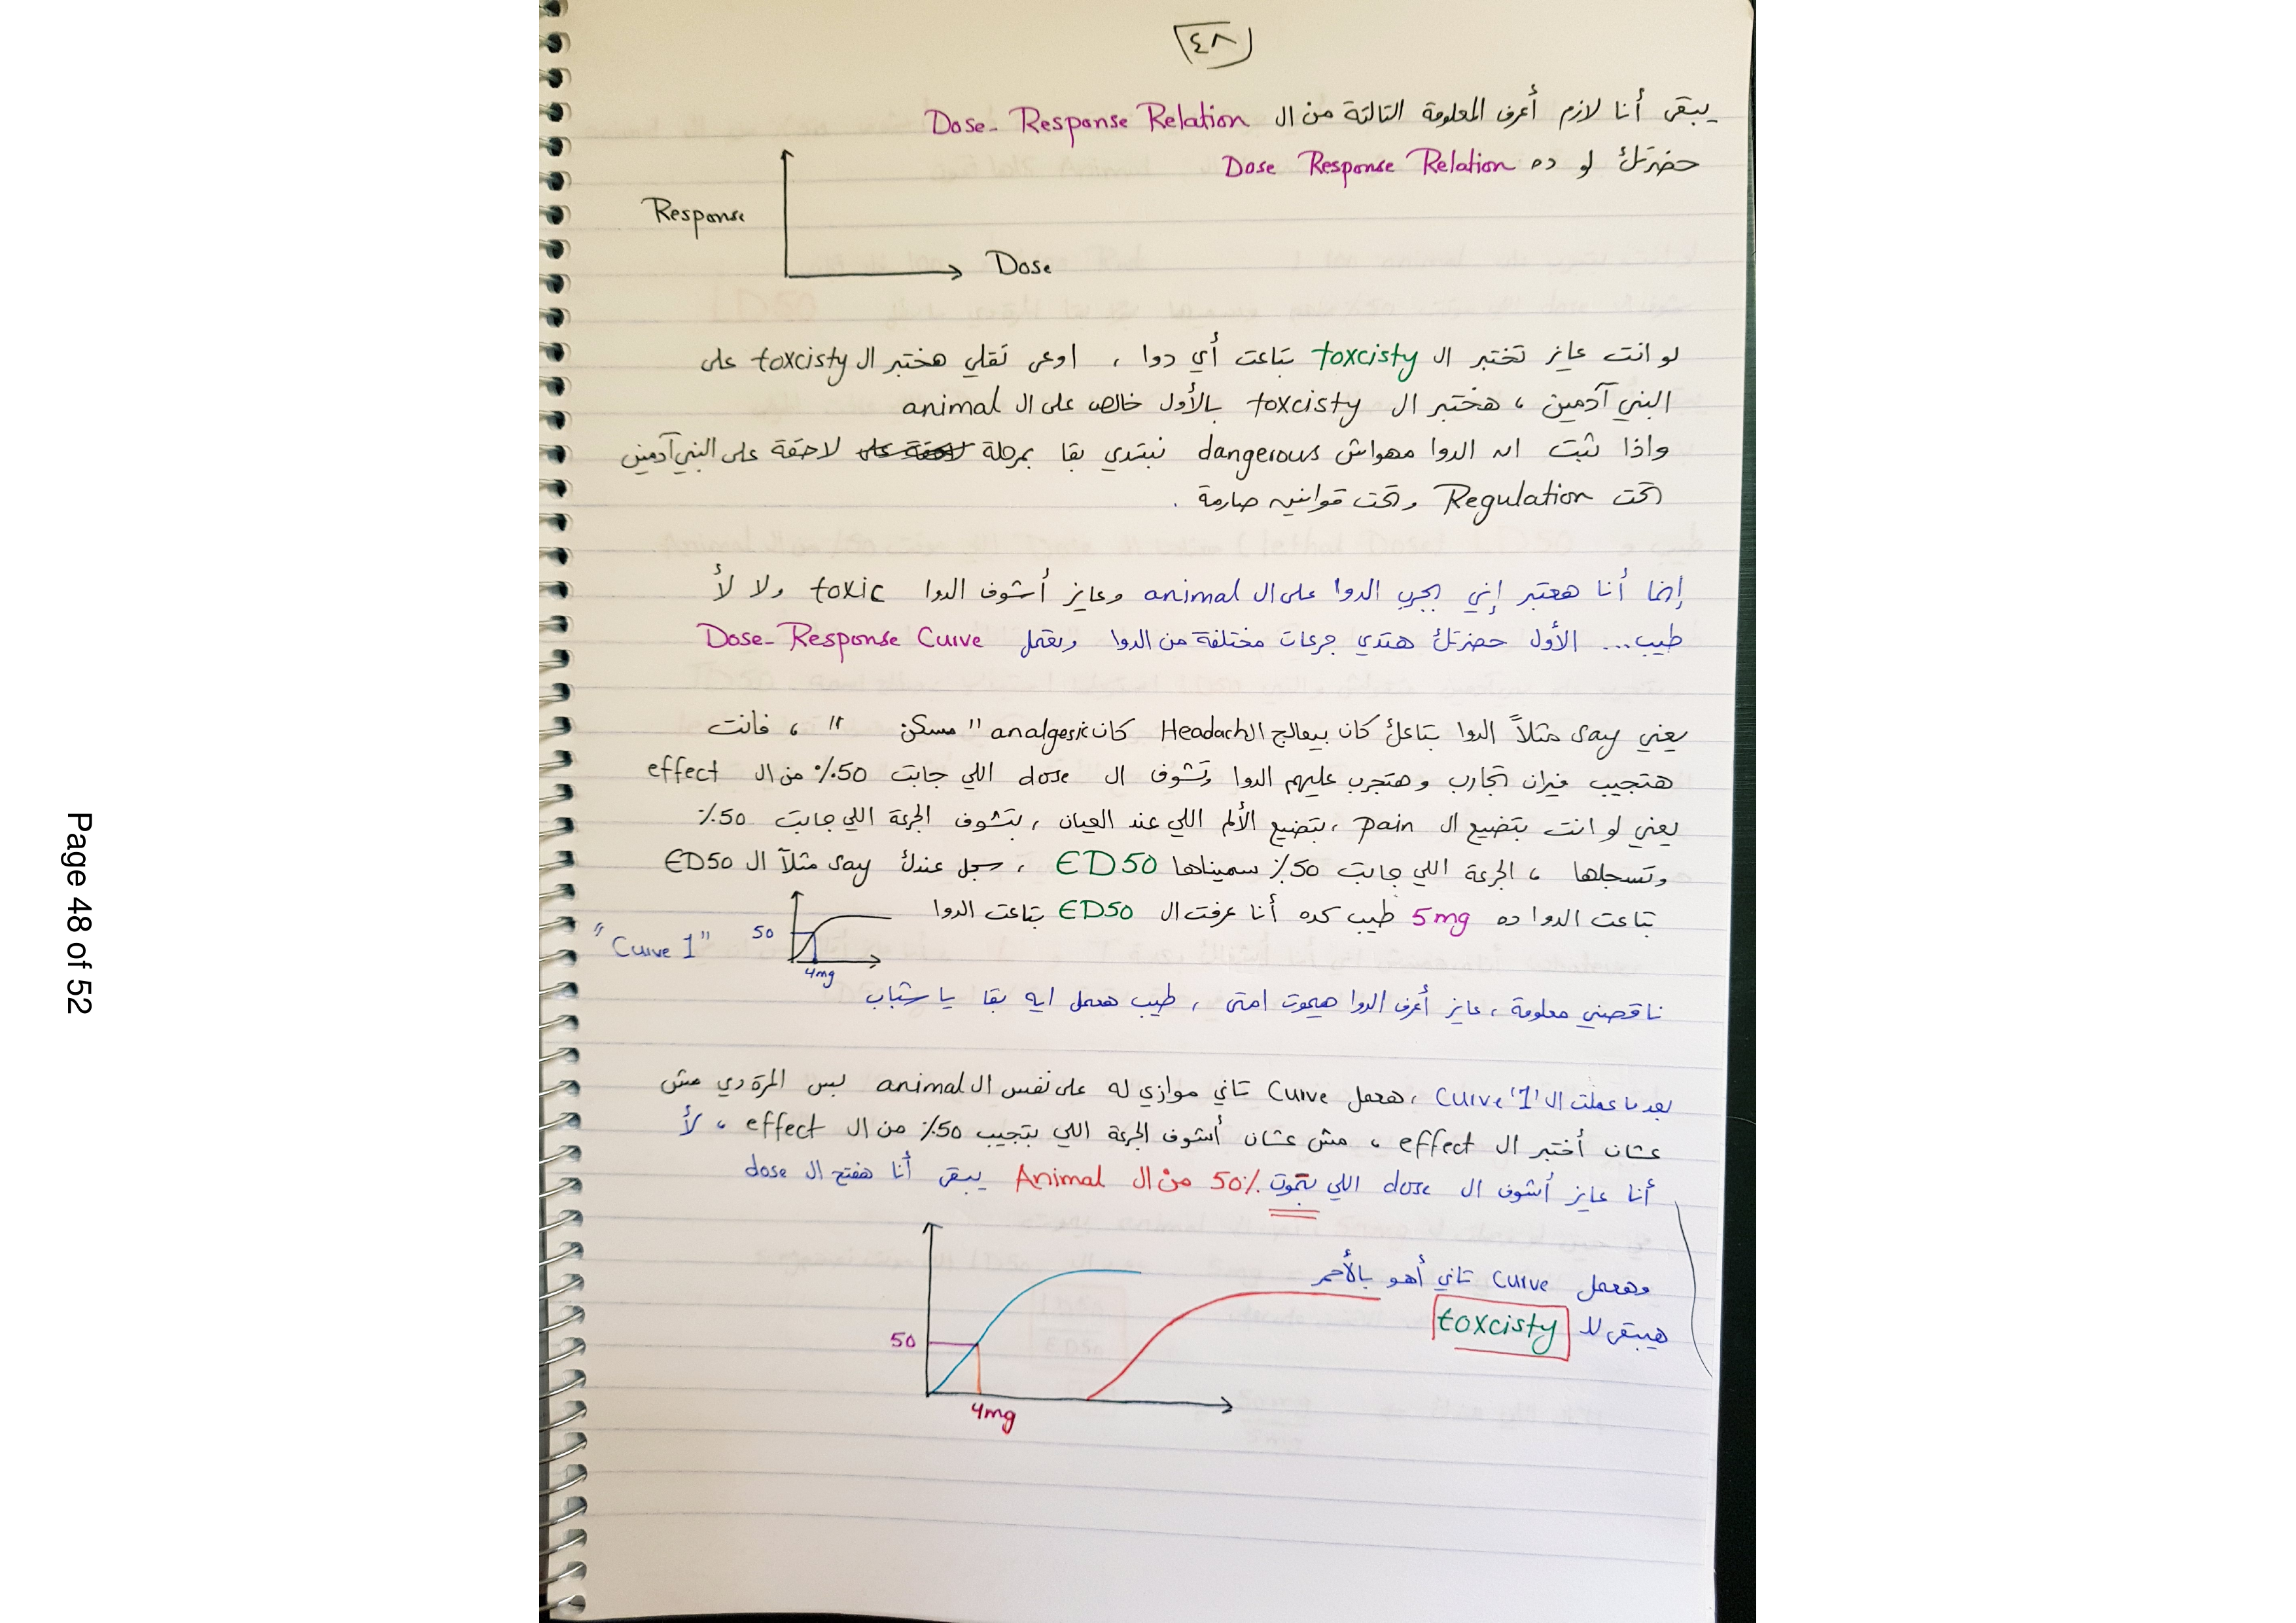 ٤٨
يبقى أنا لازم أعرف المعلومة التالتة من ال Dose - Response Relation
حضرتك لو ده Dose Response Relation
Response
Dose
لو انت عايز تختبر ال toxcisty بتاعت أي دوا ، اوعى تقلي هختبر ال toxcisty على
البني آدمين ، هختبر ال toxcisty بالأول خالص على ال animal
واذا ثبت ان الدوا مهواش dangerous نبتدي بقا بمرحلة لاحقة على البني آدمين
تحت Regulation وتحت قوانين صارمة .
إنما أنا هعتبر إني بجرب الدوا على ال animal وعايز أشوف الدوا toxic ولا لأ
طيب... الأول حضرتك هتدي جرعات مختلفة من الدوا وبتعمل Dose - Response Curve
يعني say مثلاً الدوا بتاعك كان بيعالج ال Headach كان analgesic " مسكن " ، فانت
هتجيب فيران تجارب وهتجرب عليهم الدوا وتشوف ال dose اللي جابت 50٪ من ال effect
يعني لو انت بتضيع ال pain ، بتضيع الألم اللي عند العيان ، بتشوف الجرعة اللي جابت 50٪
وتسجلها ، الجرعة اللي جابت 50٪ سميناها ED50 ، سجل عندك say مثلاً ال ED50
بتاعت الدوا ده 5mg طيب كده أنا عرفت ال ED50 بتاعت الدوا
50
4mg
" Curve 1 "
ناقصني معلومة ، عايز أعرف الدوا هيموت امتى ، طيب هعمل ايه بقا يا شباب
بعد ما عملت ال Curve '1' ، هعمل Curve تاني موازي له على نفس ال animal بس المرة دي مش
عشان أختبر ال effect ، مش عشان أشوف الجرعة اللي بتجيب 50٪ من ال effect ، لأ
أنا عايز أشوف ال dose اللي بتموت 50٪ من ال Animal يبقى أنا هفتح ال dose
وهعمل Curve تاني أهو بالأحمر
هيبقى لل toxcisty
50
4mg
Page 48 of 52